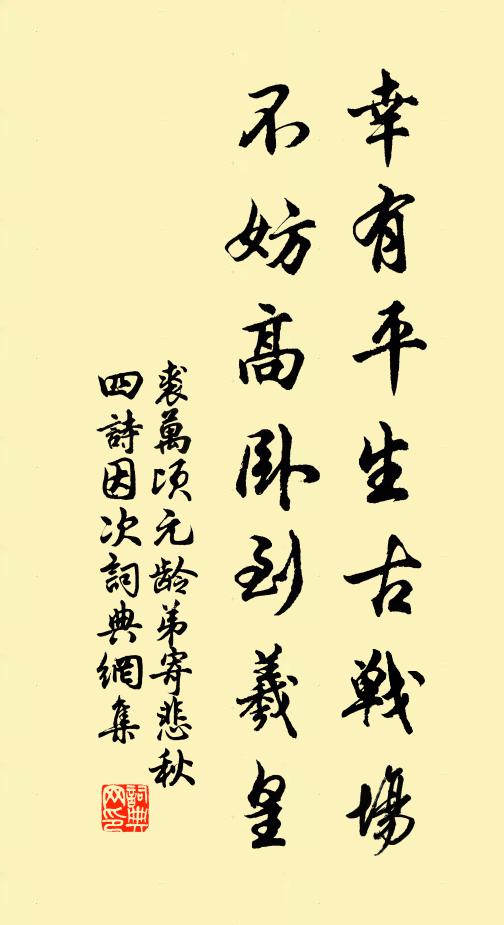 幸有平生古戰場
不妨高卧到羲皇
裘萬頃元龄弟寄悲秋
四詩因次詞典網集
詞典
网印